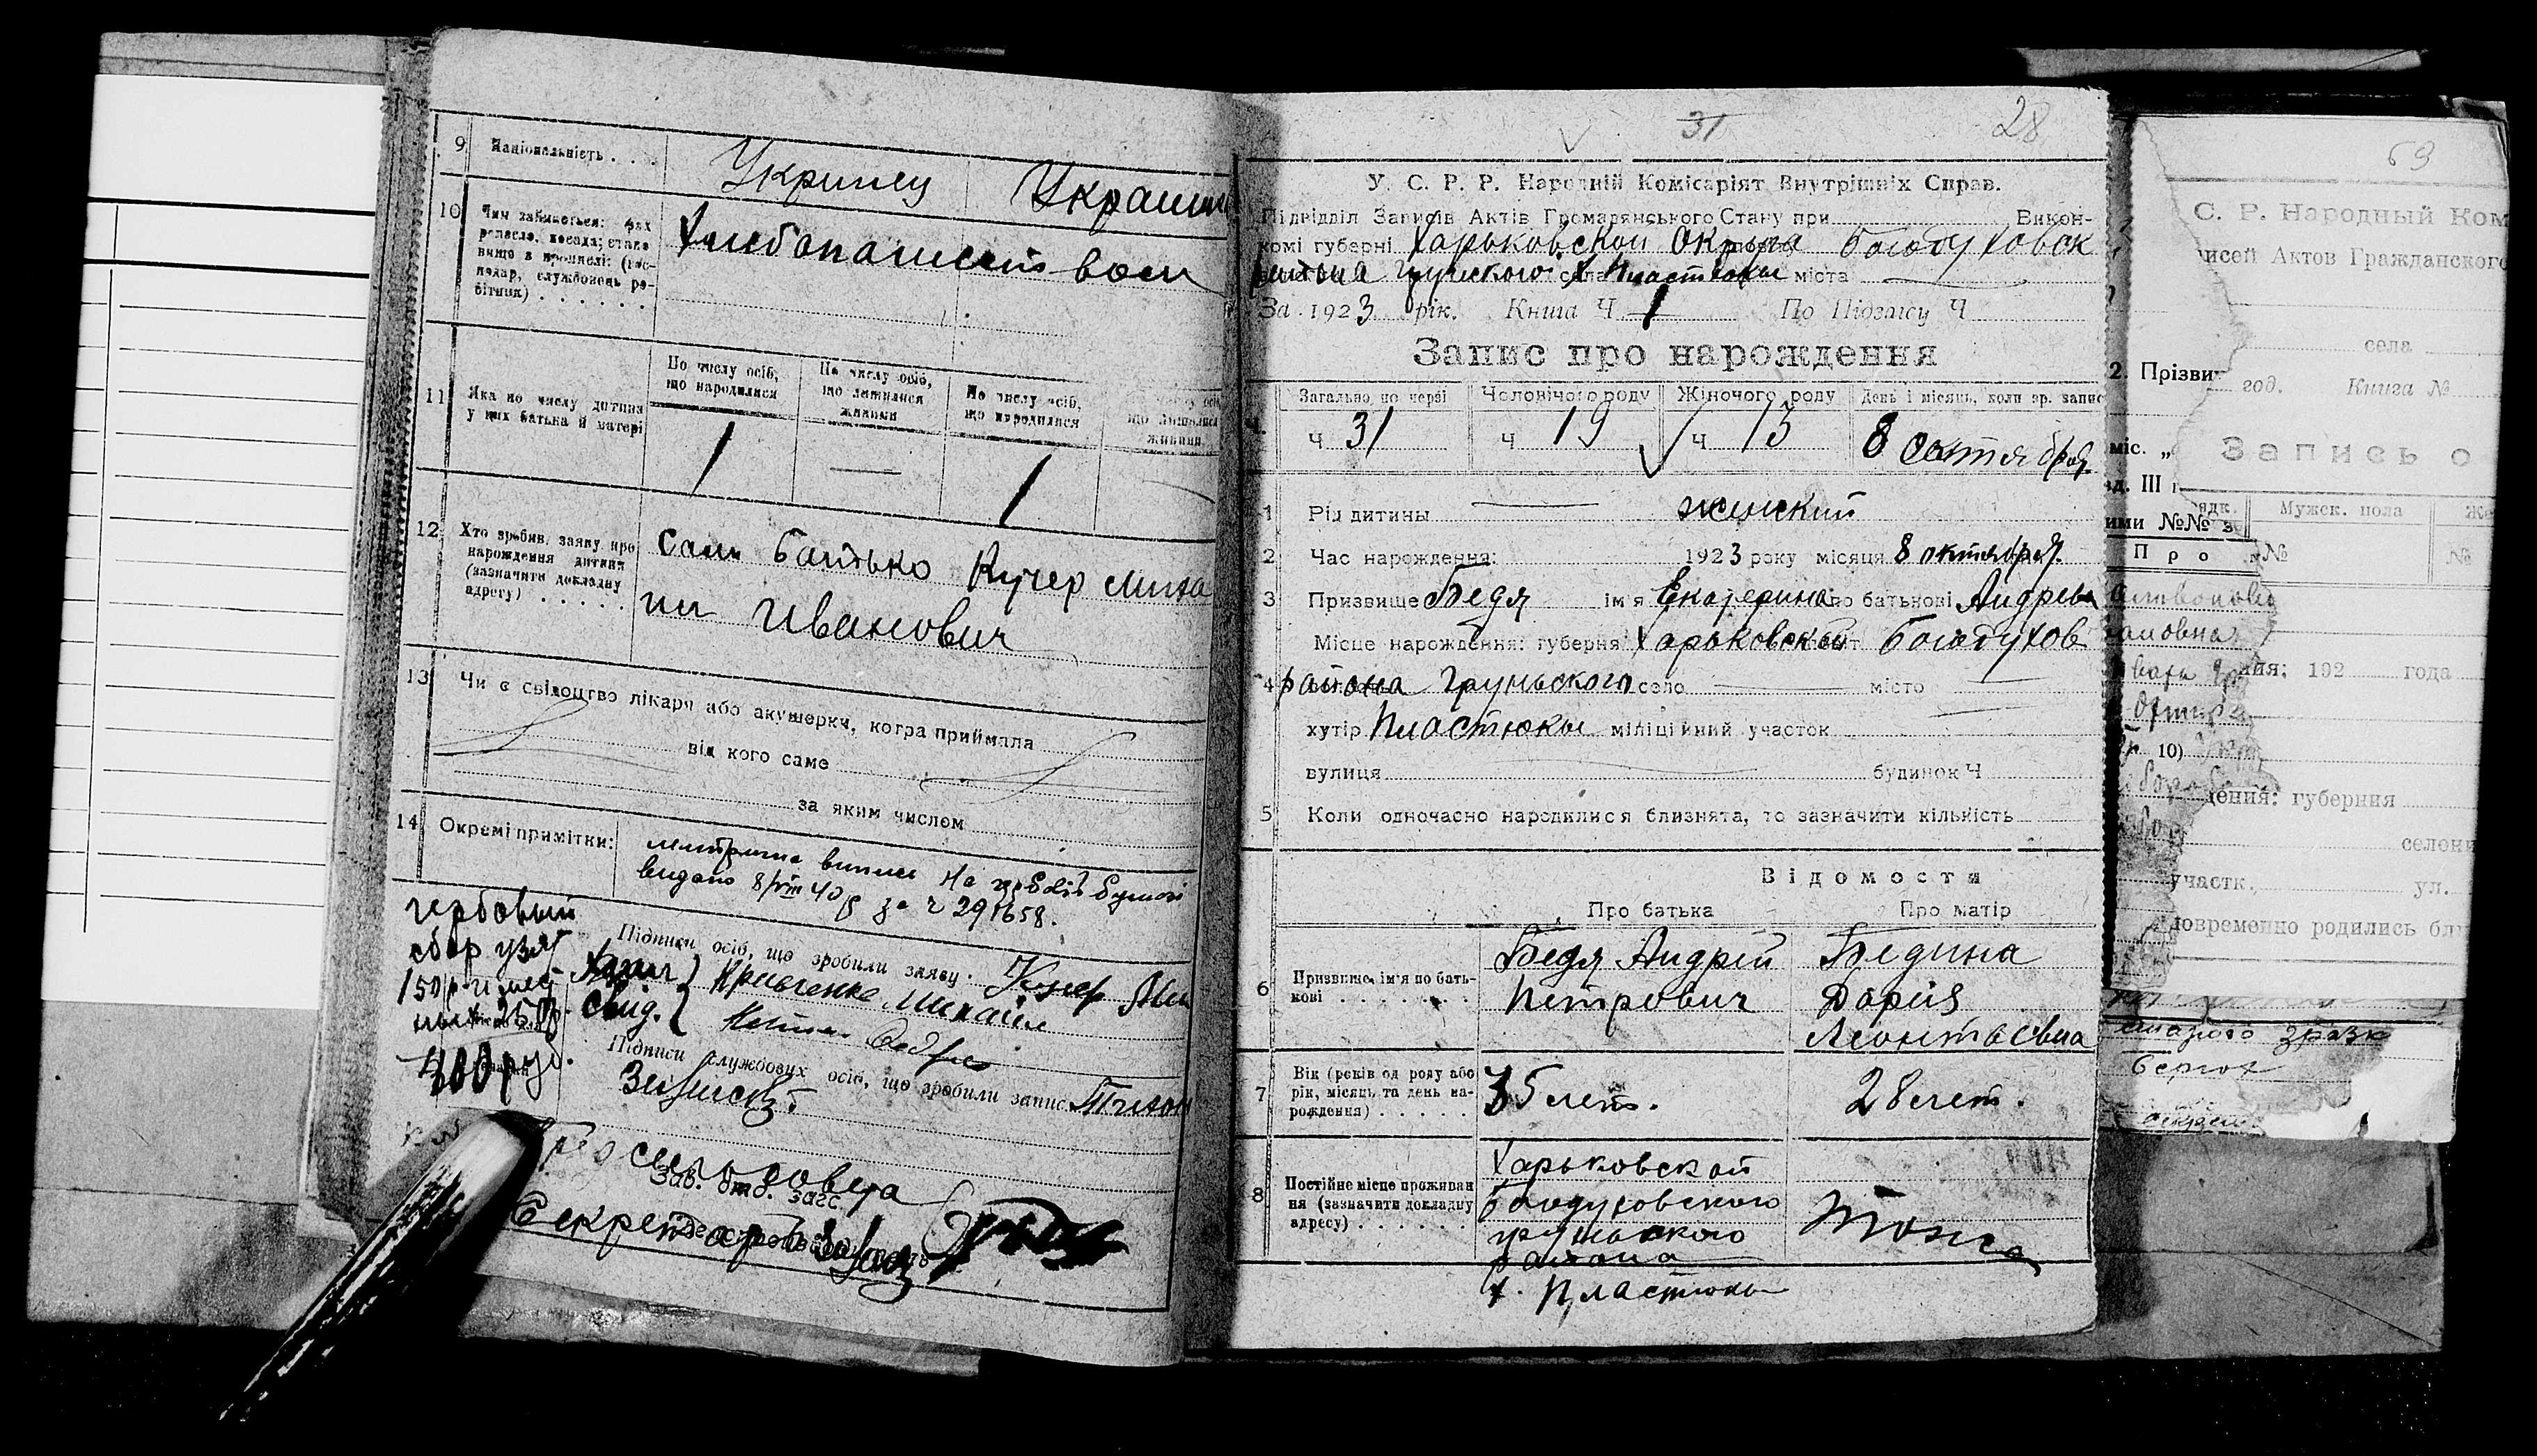 9 Національність . . .
Укринец Украин
10 Чим займається: фах
ремесло, посада; стано
вище в промислі: (гос-
подар, службовець ро-
бітник) . . . . . .
Хлебопашеством
11 Яка по числу дитина
у цих батька й матері
По числу осіб,
що народилися
По числу осіб,
що лишилися
живими
По числу осіб,
що народилися
що лишилися
живими
1 — 1
12 Хто зробив заяву про
нарождення дитини
(зазначити докладну
адресу) . . . . .
Сам батько Кучер Миха
ил Иванович
13 Чи є свідоцтво лікаря або акушерки, котра приймала
від кого саме
за яким числом
14 Окремі примітки:
видано 8/VIII 40 р за ч 291658.
гербовый
сбор узят
150 р
25 р.
Підписи осіб, що зробили заяву. Кучер Ми
свид. Михаил
Підписи службових осіб, що зробили запис Тихон
сильсовета
Зав. отд. загс.
Секретарь
31 28
У. С. Р. Р. Народній Комісаріят Внутрішніх Справ.
Підвідділ Записів Актів Громадянського Стану при Викон-
комі губерні Харьковской Округа Богодуховск
района Груньского села х Пластюки міста
За 1923 рік. Книга Ч 1 По Підпису Ч
Запис про нарождення
Загально по черзі Чоловічого роду Жіночого роду День і місяць, коли зр. запис
Ч 31 Ч 19 Ч 13 8 Октября
1 Рід дитини женский
2 Час нарождення: 1923 року місяця 8 октября.
3 Призвище Бедя ім'я Екатерина по батькові Андрев
Місце нарождення: губерня Харьковской Богодухов
4 района Груньского село — місто —
хутір Пластюки міліційний участок
вулиця будинок Ч
5 Коли одночасно народилися близнята, то зазначити кількість
Відомости
Про батька Про матір
6 Призвище, ім'я по бать-
кові . . . . . . .
Бедя Андрій
Петрович
Бедина
Дария
Леонтьевна
7 Вік (років од роду або
рік, місяць та день на-
родження) . . . . .
35 лет. 28 лет.
8 Постійне місце проживан
ня (зазначити докладну
адресу) . . . . . .
Харьковской
Богодуховского
груньского
района
х. Пластюки
Тоже
63
С. Р. Народный Ком
исей Актов Гражданского
села
2. Прізви
год. Книга №
міс. „
Запись о
зд. III
ими №№ з
Мужск. пола Же
Про
№ №
ния; 192 года
10)
дения: губерния
селени
участк. ул.
новременно родились бли
старого зразк